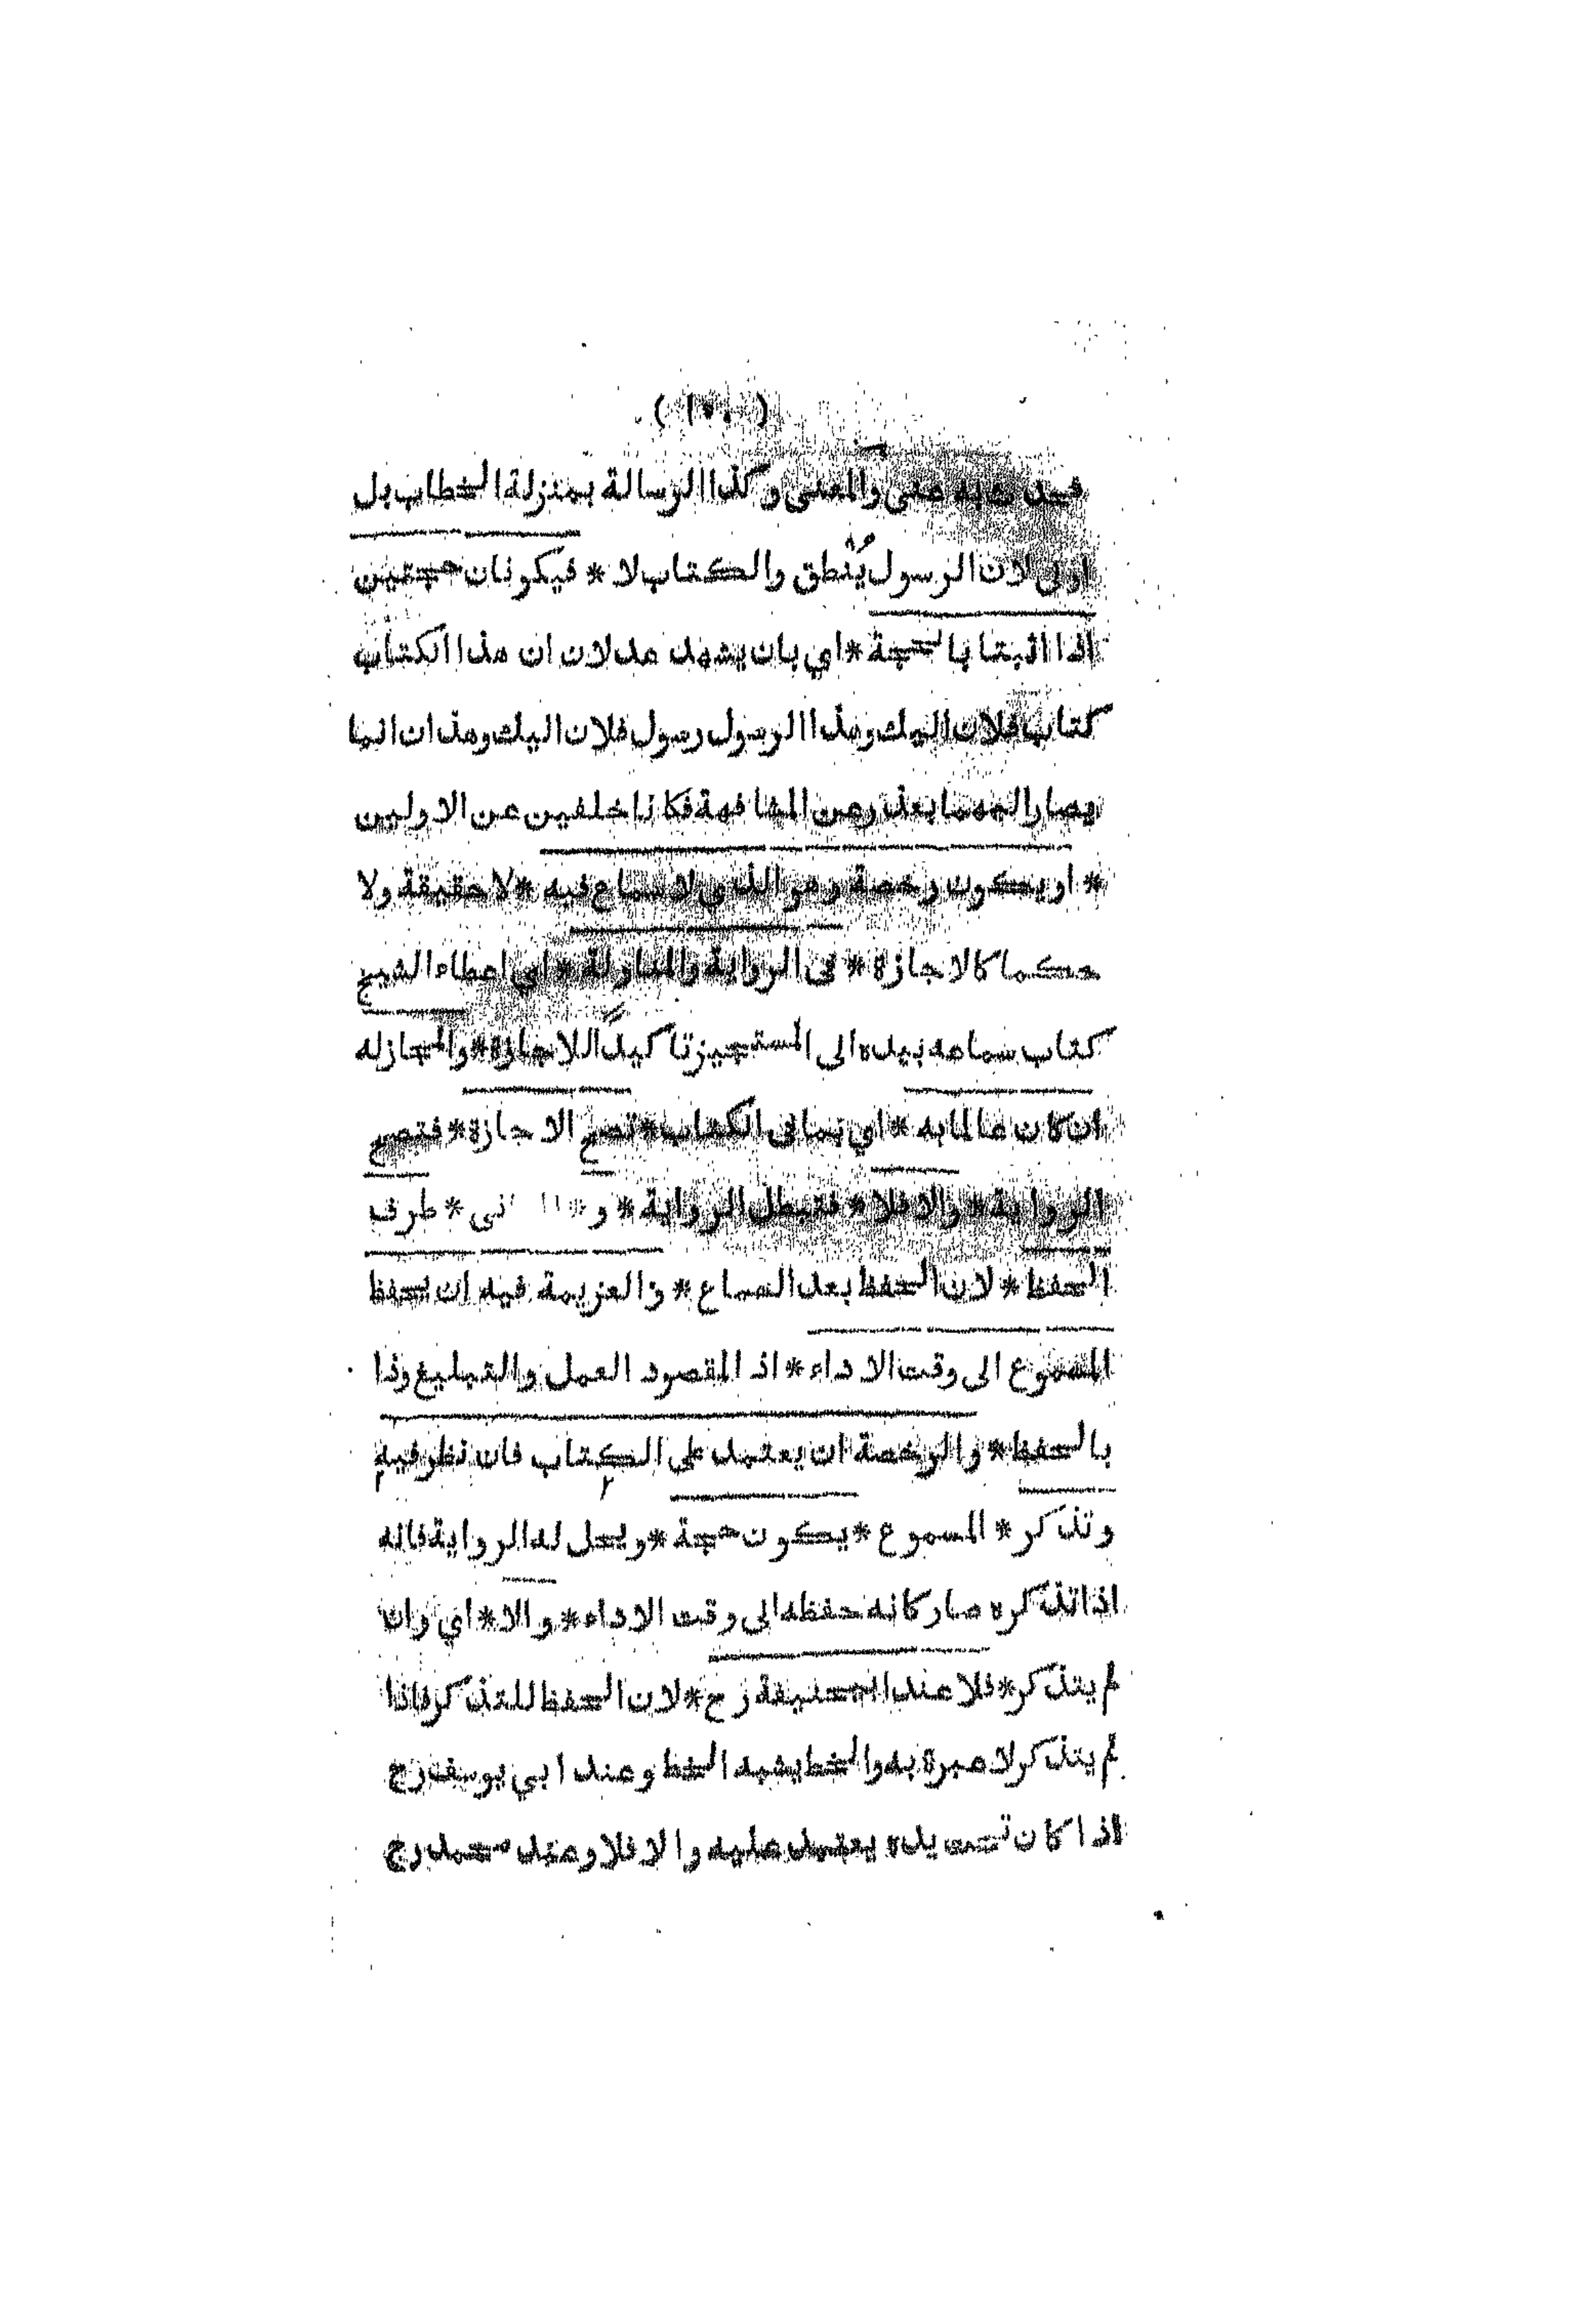 ( ١٠٠ )
فحدث به عني والمعنى وكذا الرسالة بمنزلة الخطاب بل
اولى لان الرسول يُنْطق والكتاب لا * فيكونان حجتين
اذا اثبتا بالحجة * اي بان يشهد عدلان ان هذا الكتاب
كتاب فلان اليك وهذا الرسول رسول فلان اليك وهذان انما
يصار اليهما بعذر عن المشافهة فكانا خلفين عن الاولين
* او يكون رخصة وهو الذي لا سماع فيه * لا حقيقة ولا
حكما كالاجازة * في الرواية والمناولة * اي اعطاء الشيخ
كتاب سماعه بيده الى المستجيز تاكيدًا للاجازة * والمجاز له
ان كان عالما به * اي بما في الكتاب * تصح الاجازة * فتصح
الرواية * والا فلا * فتبطل الرواية * و * طرف
الحفظ * لان الحفظ بعد السماع * والعزيمة فيه ان تحفظ
المسموع الى وقت الاداء * اذ المقصود العمل والتبليغ وذا
بالحفظ * والرخصة ان يعتمد على الكتاب فان نظر فيه
وتذكر * المسموع * يكون حجة * ويحل له الرواية فانه
اذا تذكره صار كانه حفظه الى وقت الاداء * والا * اي وان
لم يتذكر * فلا عند ابيحنيفة رح * لان الحفظ للتذكر فاذا
لم يتذكر لا عبرة به والخط يشبه الخط وعند ابي يوسف رح
اذا كان تحت يده يعتمد عليه والا فلا وعند محمد رح